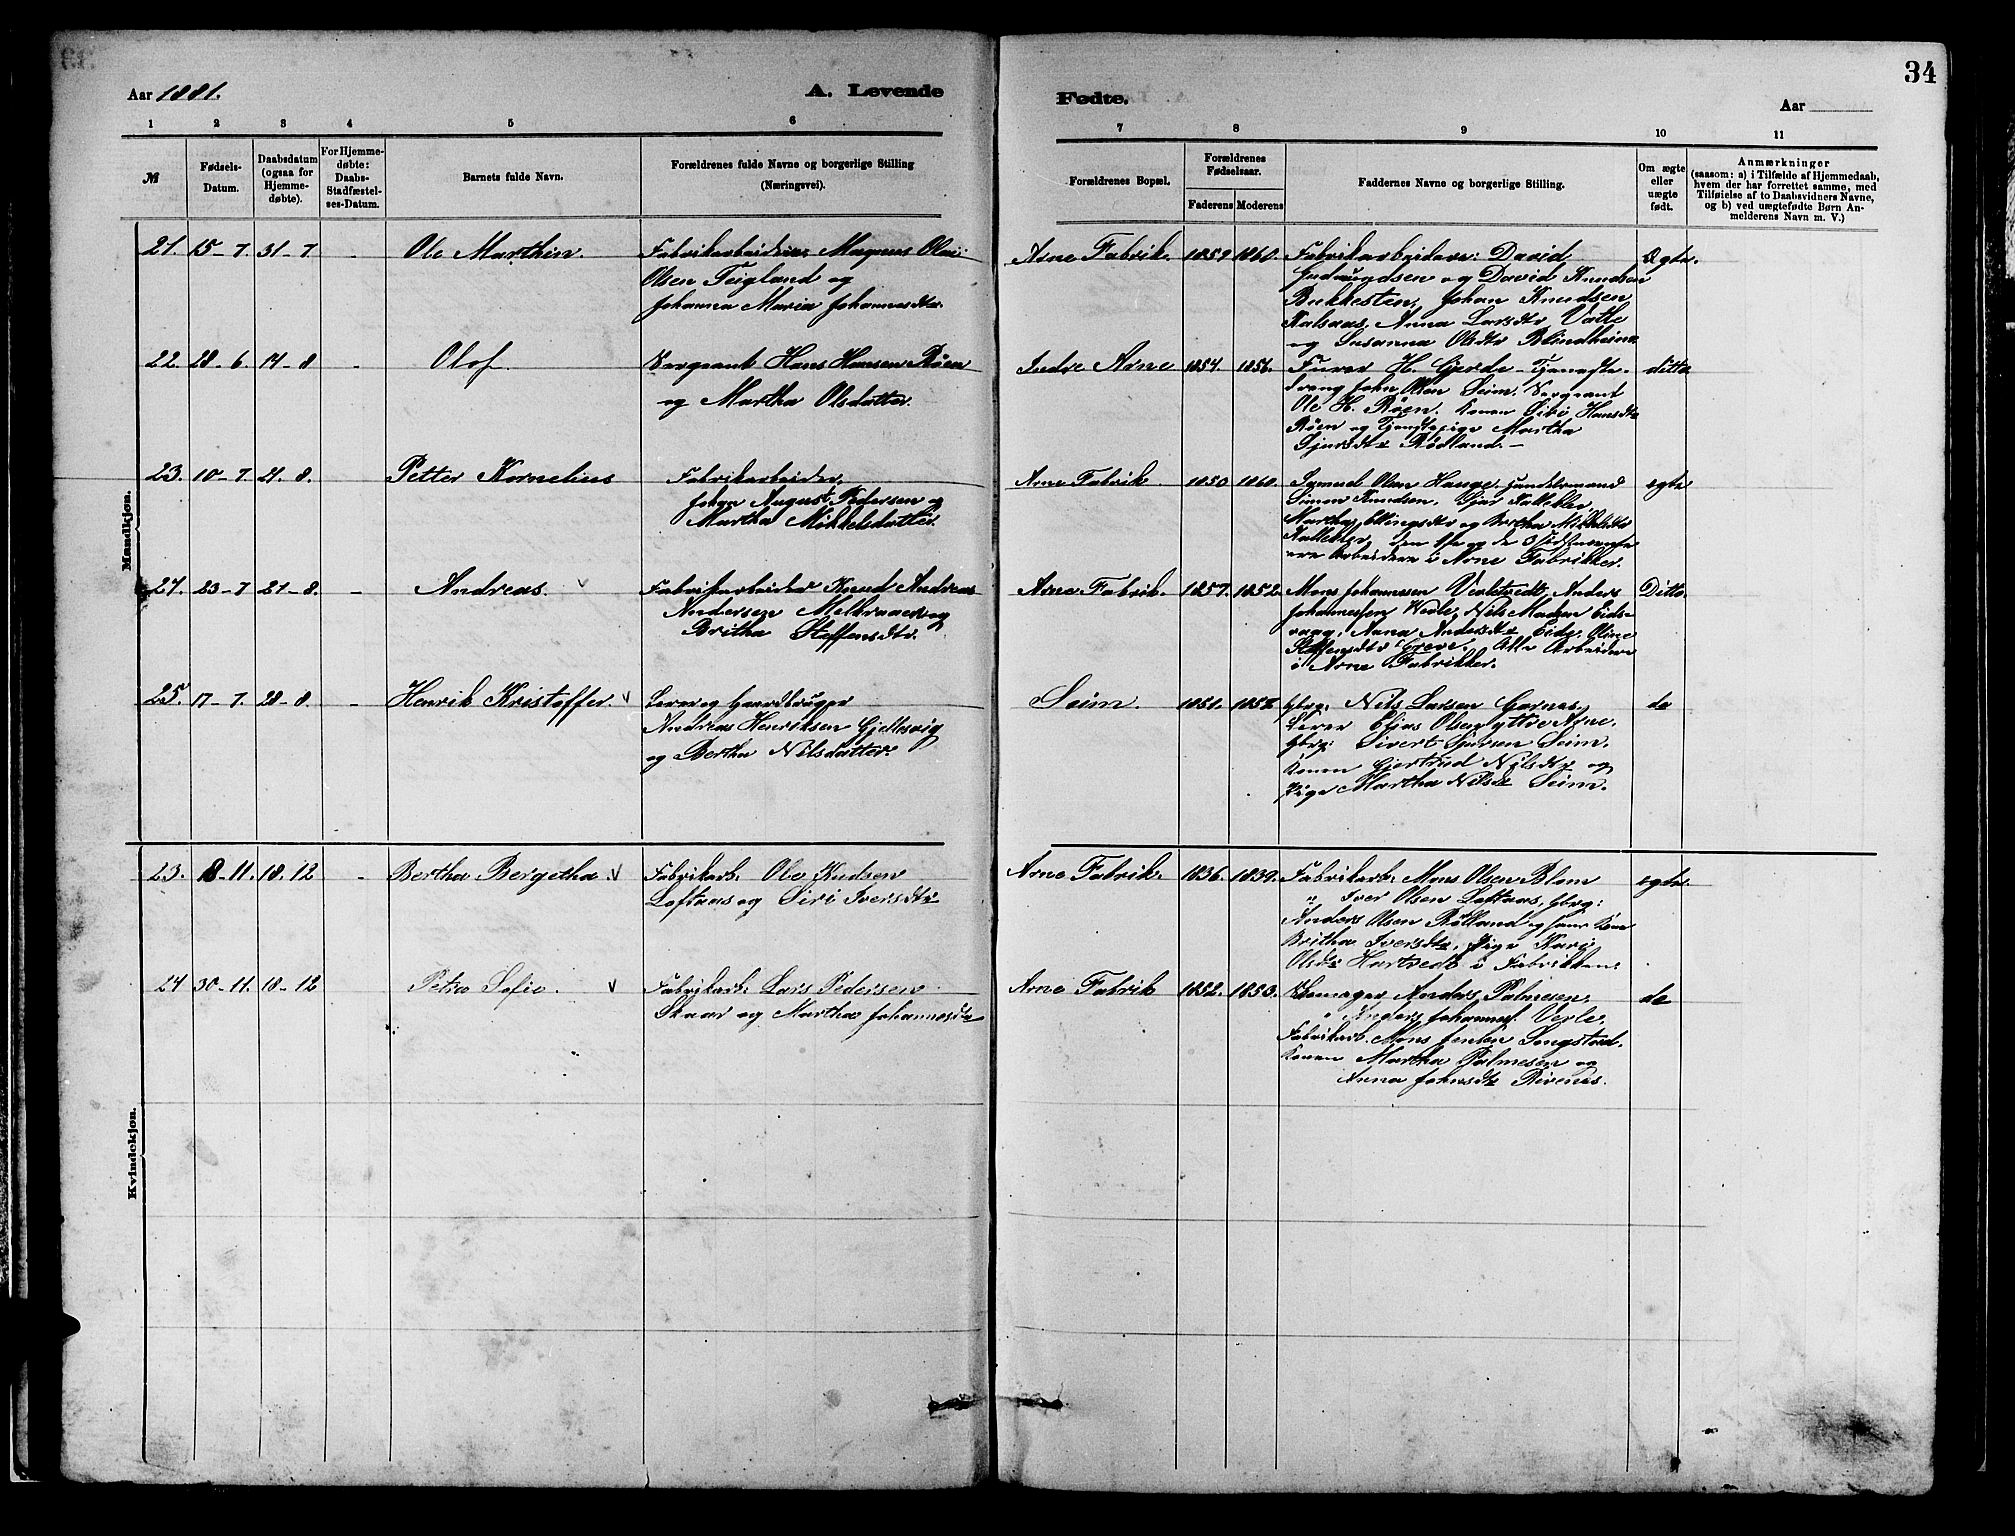 34
Aar 1881.
A. Levende
Fødte.
Aar
1 2 3 4 5 6 7 8 9 10 11
№
Fødsels-Datum.
Daabsdatum (ogsaa for Hjemmedøbte).
For Hjemmedøbte: Daabs-Stadfæstelses-Datum.
Barnets fulde Navn.
Forældrenes fulde Navne og borgerlige Stilling
(Næringsvei).
Forældrenes Bopæl.
Forældrenes Fødselsaar.
Faderens Moderens
Faddernes Navne og borgerlige Stilling.
Om ægte eller uægte født.
Anmærkninger
(saasom: a) i Tilfælde af Hjemmedaab,
hvem der har forrettet samme, med
Tilføielse af to Daabsvidners Navne,
og b) ved uægtefødte Børn An-
melderens Navn m. V.)
Mandkjøn.
21. 15-7. 31-7 - Ole Marthin.
Fabrikarbeider Magnus Olai
Olsen Teigland og
Johanna Maria Johannesdtr.
Arne Fabrik. 1859 1860.
Fabrikarbeidere: David
Gudmundsen og David Knudsen
Bukkesten, Johan Knudsen
Kalsaas, Anna Larsdtr Vatle
og Susanna Olsdtr Blindheim
Ægte.
22. 28-6. 14-8 Olof
Sergeant Hans Hansen Røen
og Martha Olsdatter.
Indre Arne 1854. 1856.
Furer H. Gjerde - Tjeneste-
dreng John Olsen Seim. Sergeant
Ole H. Røen. Konen Sibi Hansdtr
Røen og Tjenestepige Martha
Sjursdtr Rødland. -
ditto
23. 10-7. 21-8. - Petter Kornelius
Fabrikarbeider,
Johan August Pedersen og
Martha Mikkelsdatter.
Arne Fabrik 1850 1860.
Samuel Olsen Hauge, Handelsmand
Simon Knudsen, Sjur Kallekler,
Martha Ellingsdtr og Bertha Mikkelsdtr
Kallekler, den 1ste og de 3 sidstnævnte
ere Arbeidere i Arne Fabrikker.
egte
24. 23-7 21-8. - Andreas. v
Fabrikarbeider Knud Andreas
Andersen Melkeraaen og
Britha Steffensdtr.
Arne Fabrik. 1857. 1852
Mons Johannessen Veletvedt, Anders
Johannessen Werle, Nils Madsen Eids-
vaag, Anna Andersdtr Eide, Oline
Steffensdtr Greve. Alle Arbeidere
i Arne Fabrikker.
Ditto.
25. 17-7. 28-8. - Henrik Kristoffer. v
Lærer og Gaardbruger
Andreas Henriksen Gjellesvig
og Bertha Nilsdatter.
Seim. 1851. 1852
Gbrg: Nils Larsen Garnes,
Lærer Elias Olsen Yttre Arne,
Gbrg: Sivert Sjursen Seim.
Konen Gjertrud Nilsdtr og
Pige Martha Nilsdtr Seim.
do
Kvindekjøn.
23. 8-11. 18.12 - Bertha Bergitha. v
Fabrikarb: Ole Knudsen
Loftaas og Siri Iversdtr
Arne Fabrik. 1836. 1839.
Fabrikarb: Mons Olsen Blom
" Iver Olsen Loftaas, Gbrg:
Anders Olsen Rølland og hans Kone
Britha Iversdtr, Pige Kari
Olsdtr Hartvedt i Fabrikken.
egte.
24 30-11. 18-12 Petra Sofie. v
Fabrikarb: Lars Pedersen
Skaar og Martha Johannesdtr
Arne Fabrik 1852. 1853.
Skomager Anders Palmesen,
" Anders Johannes. Verle,
Fabrikarb. Mons Jensen Songstad.
Konen Martha Palmesen og
Anna Johnsdtr Rivenes.
do